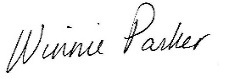 Winnie Parker